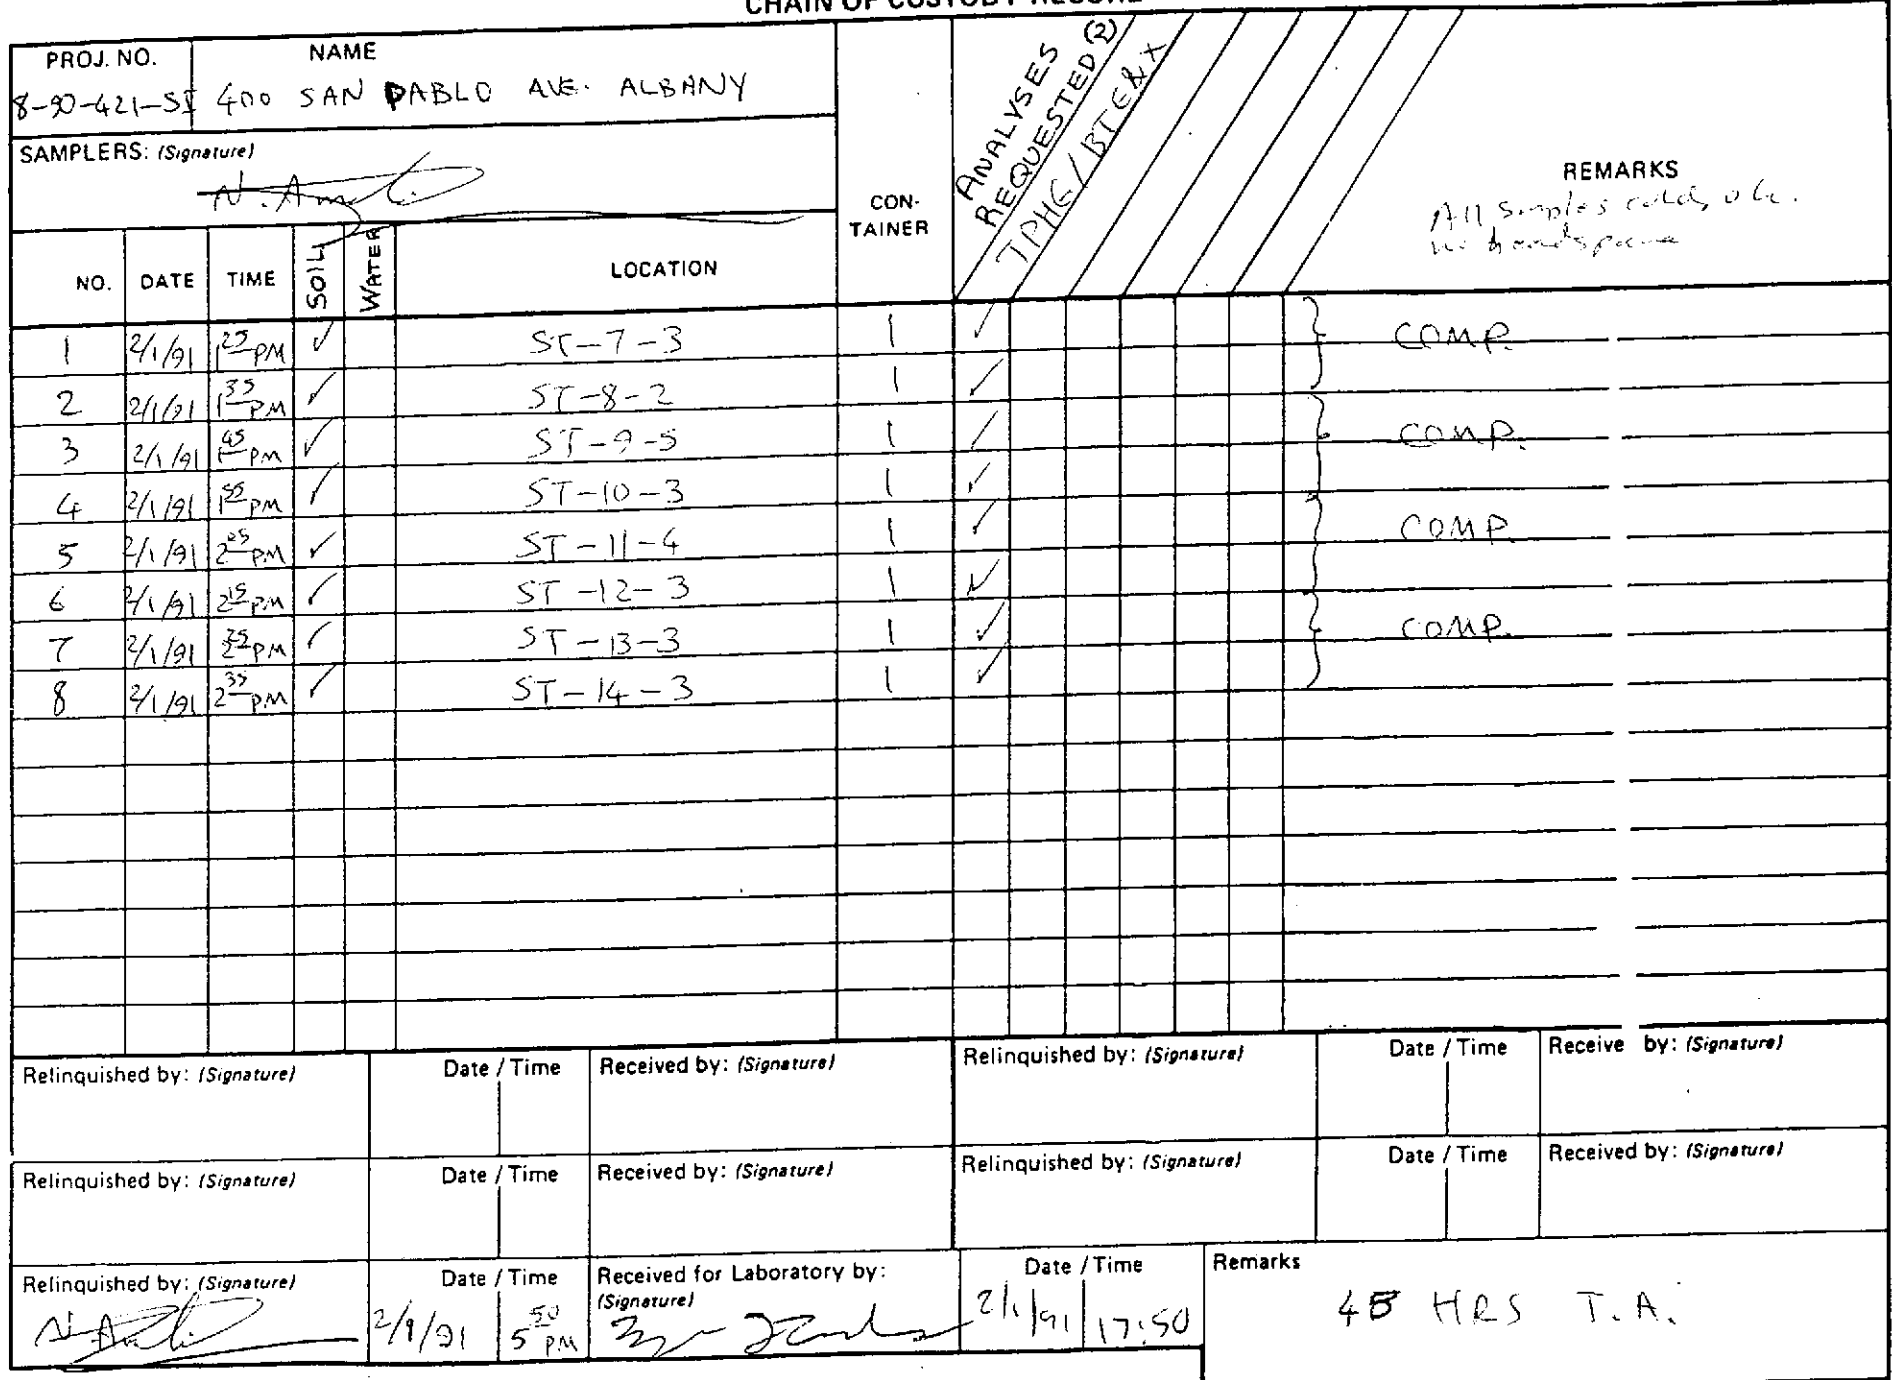 CHAIN OF CUSTODY RECORD
PROJ. NO. NAME
8-90-421-SI 400 SAN PABLO AVE. ALBANY
SAMPLERS: (Signature)
CON-
TAINER
ANALYSES
REQUESTED (2)
TPHG/BTE&X
REMARKS
All samples cold, ok.
NO. DATE TIME SOIL WATER LOCATION
1 2/1/91 1 25 PM ✓ ST-7-3 1 ✓ COMP.
2 2/1/91 1 35 PM ✓ ST-8-2 1 ✓
3 2/1/91 1 45 PM ✓ ST-9-5 1 ✓ COMP.
4 2/1/91 1 55 PM ✓ ST-10-3 1 ✓
5 2/1/91 2 PM ✓ ST-11-4 1 ✓ COMP.
6 2/1/91 2 15 PM ✓ ST-12-3 1 ✓
7 2/1/91 2 25 PM ✓ ST-13-3 1 ✓ COMP.
8 2/1/91 2 35 PM ✓ ST-14-3 1 ✓
Relinquished by: (Signature) Date / Time Received by: (Signature) Relinquished by: (Signature) Date / Time Receive by: (Signature)
Relinquished by: (Signature) Date / Time Received by: (Signature) Relinquished by: (Signature) Date / Time Received by: (Signature)
Relinquished by: (Signature) Date / Time Received for Laboratory by: Date / Time Remarks
(Signature)
2/1/91 5 50 PM 2/1/91 17:50 HRS T.A.